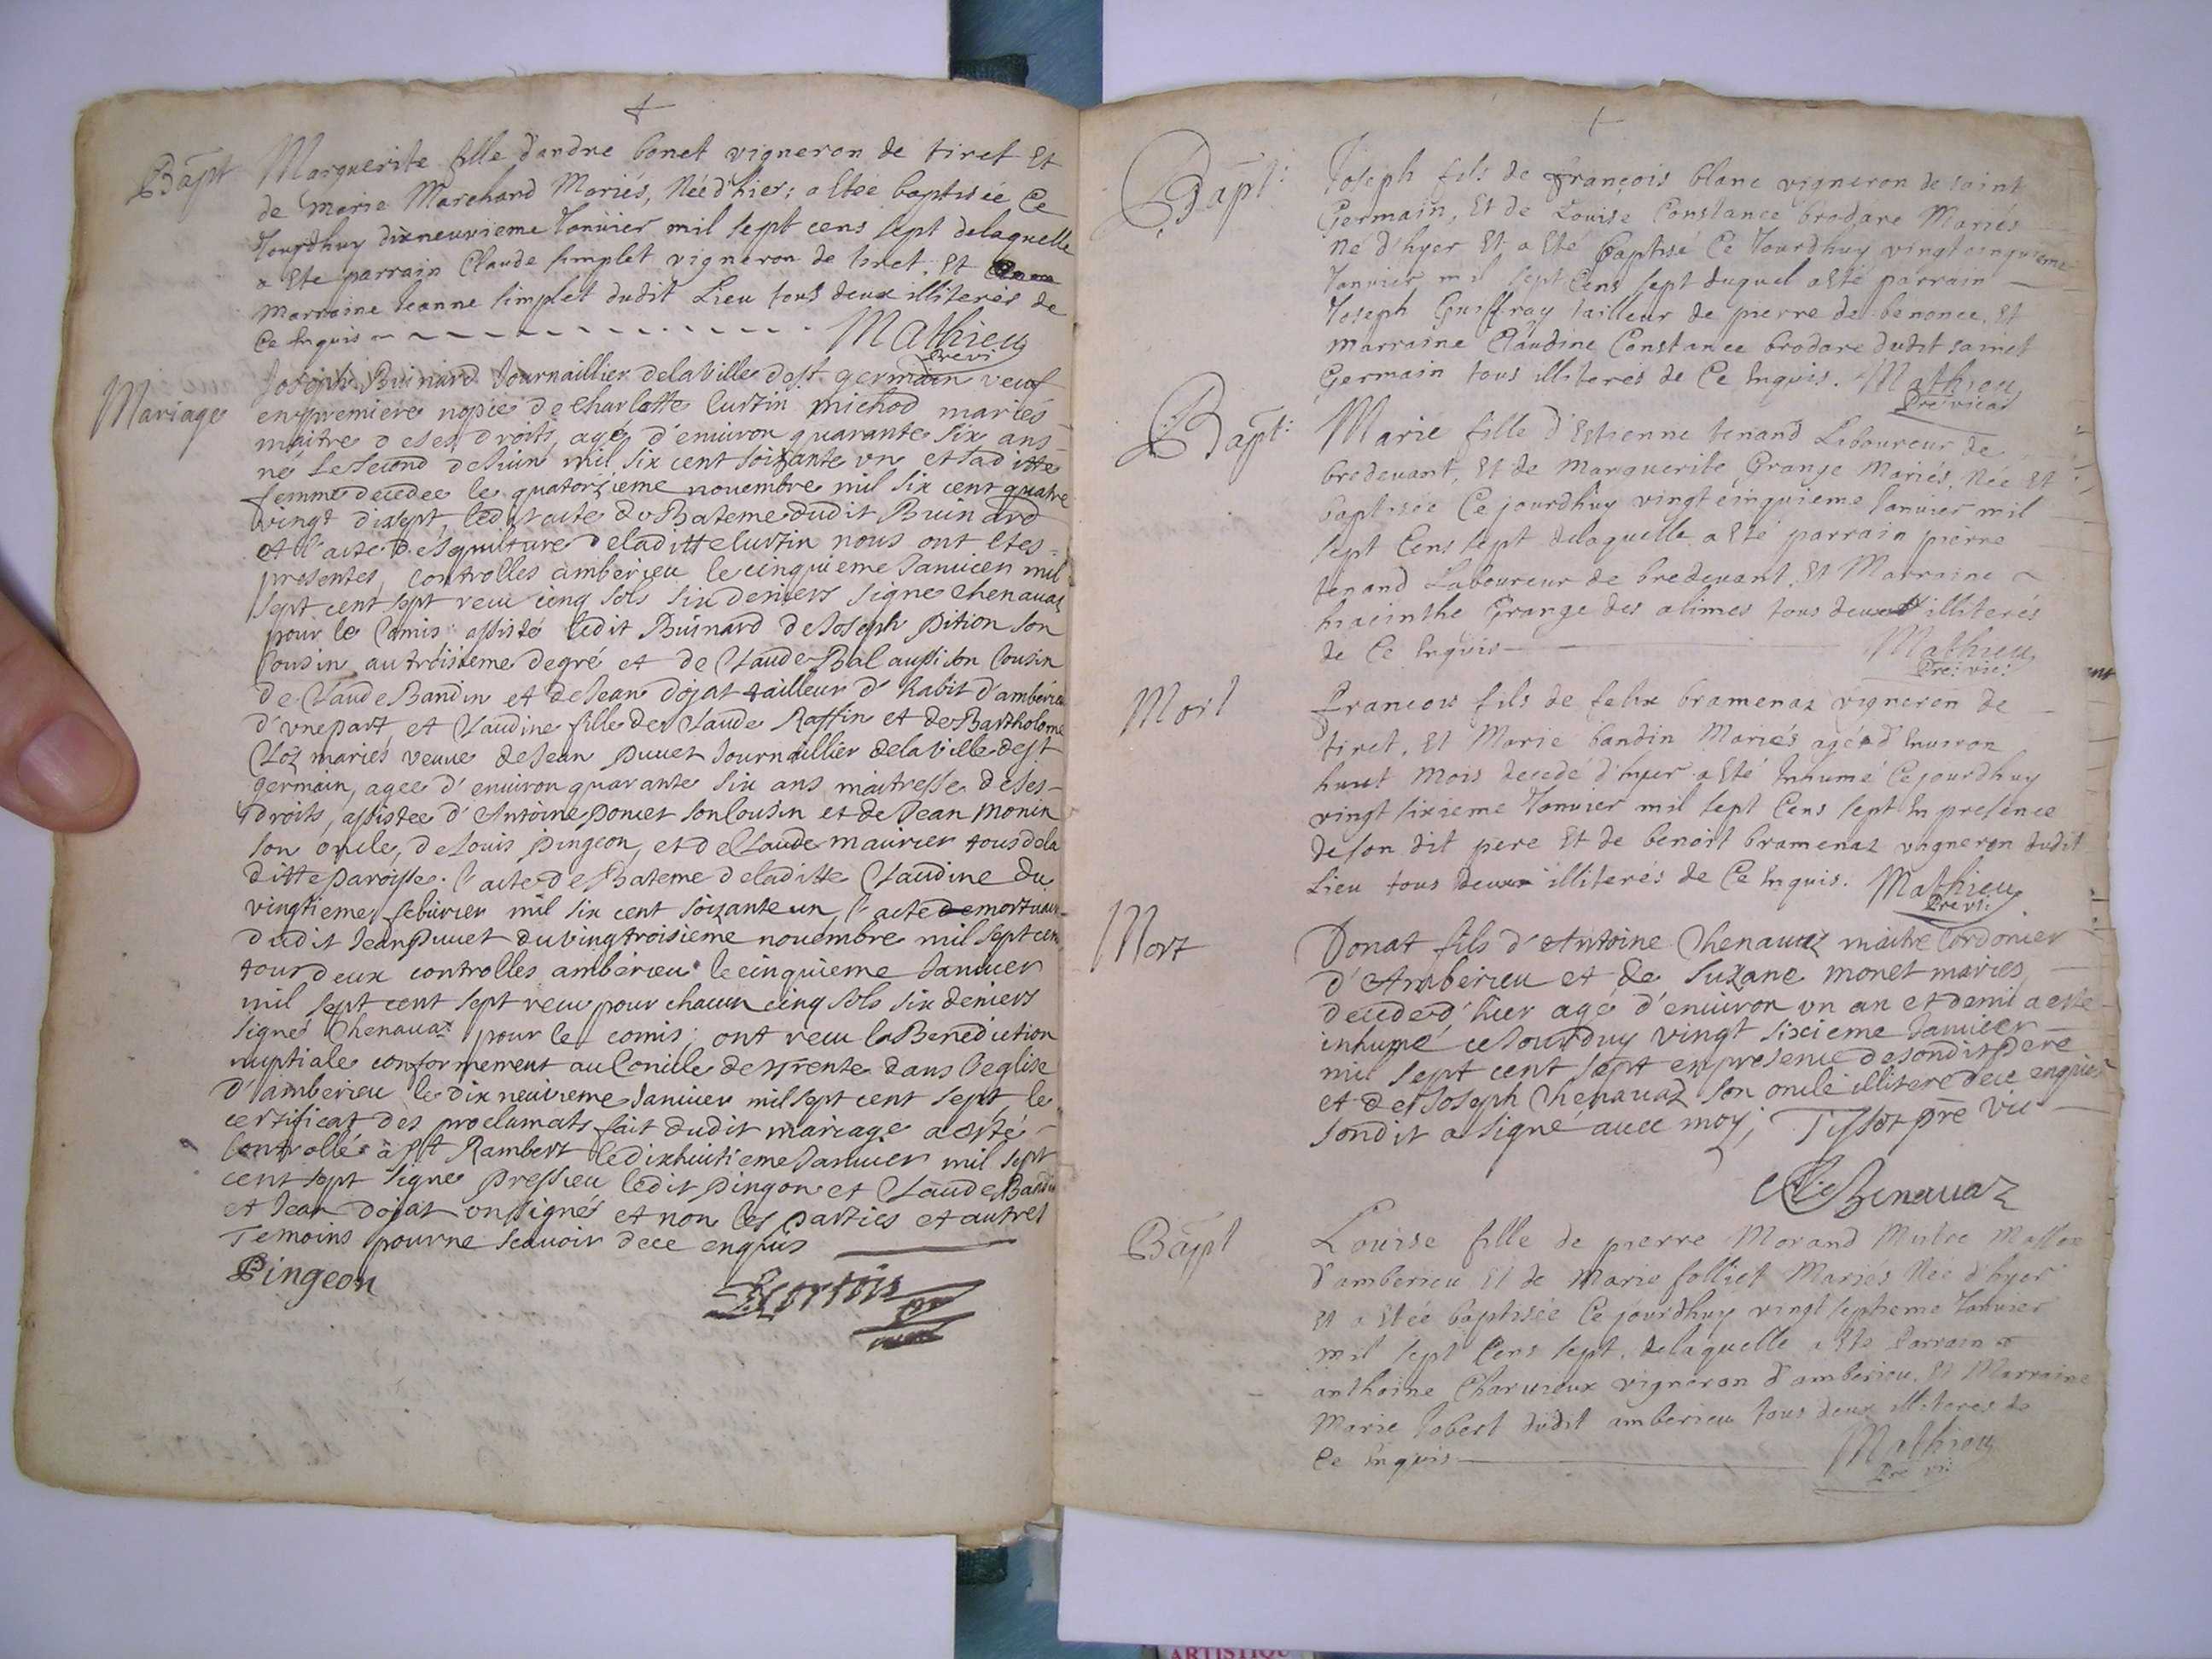 Bapt
Marguerite fille d'andre bonet vigneron de tiret Et
de Marie Marchand Mariés, Née d'hier; a Etée baptisée Ce
Jourdhuy dixneuvieme Janvier mil sept cens sept delaquelle
a Ete parrain Claude simplet vigneron de tiret. Et
Marraine Jeanne simplet dudit Lieu tous deux illiterés de
Ce Enquis
Mathieu
Pre vi
Mariage
Joseph Buinard Journaillier dela Ville de st germain veuf
en premiere nopce de Charlotte Curtin michod mariés
maitre de ses droits, agé d'enuiron quarante six ans
né le second de Juin mil six cent soixante vn et sa ditte
femme decedee le quatorzieme nouembre mil six cent quatre
vingt dixsept, ledit acte du Bateme dudit Buinard
et l'acte de sepulture de laditte Curtin nous ont etes
presentes, controlles amberieu le cinquieme Januier mil
sept cent sept receu cinq sols six deniers signe Chenauaz
pour le Comis assisté ledit Buinard de Joseph Pition son
Cousin au troisieme degré et de Claude Bal aussi son Cousin
de Claude Bandin et de Jean dojat tailleur d'habit d'amberieu
d'vne part, et Claudine fille de Claude Raffin et de Bartholome
Cloz mariés veuve de Jean Puuet Journaillier dela ville de st
germain, agee d'enuiron quarante six ans maitresse de ses
droits, assistee d'Antoine Poncet son Cousin et de Jean Monin
son oncle, de Louis Pingeon, et de Claude maurier tous dela
ditte paroisse. l'acte de Bateme de laditte Claudine du
vingtieme febürier mil six cent soixante un, l'acte mortuaire
dudit Jean Puuet du vingtroisieme nouembre mil sept cen
tous deux controlles amberieu le cinquieme Januier
mil sept cent sept receu pour chacun cinq sols six deniers
signé Chenauaz pour le comis; ont receu la Benediction
nuptiale conformement au Concile de Trente dans l'eglise
d'amberieu le dix neuvieme Januier mil sept cent sept le
certificat des proclamats fait dudit mariage a esté
Controllé à st Rambert le dixhuitieme Januier mil sept
cent sept signe Pressieu ledit Pingon et Claude Bandin
et Jean dojat ont signés et non les parties et autres
Temoins pour ne scauoir de ce enquis
Pingeon
Bapt:
Joseph fils de françois blanc vigneron de saint
Germain, Et de Louise Constance brodare Mariés
né d'hyer Et a Eté baptisé Ce Jourdhuy vingt cinquieme
Janvier mil sept Cens sept duquel a Eté parrain
Joseph Guiffray tailleur de pierre de benonce, Et
marraine Claudine Constance brodare dudit sainct
Germain tous illiteres de Ce Enquis. Mathieu
Pre vicar
Bapt:
Marie fille d'Estienne tenand Laboureur de
bredeuant, Et de Marguerite Grange Mariés, Née Et
baptisée Ce jourdhuy vingt cinquieme Janvier mil
sept Cens sept delaquelle a Eté parrain pierre
tenand Laboureur de bredeuant, Et Marraine
hiacinthe Grange des alimes tous deux illiterés
de Ce Enquis
Mathieu
Pre: vic:
Mort
François fils de felix bramenaz vigneron de
tiret, Et Marie bandin Mariés agé d'Enuiron
huut mois decedé d'hyer a Eté Inhumé Ce jourdhuy
vingt sixieme Janvier mil sept Cens sept En presence
de son dit pere Et de benoit bramenaz vigneron dudit
Lieu tous deux illiterés de Ce Enquis. Mathieu
Pre vi:
Mort
Donat fils d'Antoine Chenauaz maitre Cordonier
d'Amberieu et de Suzane monet mariés
decede d'hier agé d'enuiron vn an et demi a esté
inhumé ce Jourduy vingt sixieme Januier
mil sept cent sept en presence de sondit pere
et de Joseph Chenauaz son oncle illitere de ce enquis
sondit a signé auec moy; Tissot pre vic
Chenauaz
Bapt
Louise fille de pierre Morand Maitre Masson
d'amberieu Et de Marie folliet Mariés Née d'hyer
Et a Etée baptisée Ce jourdhuy vingt septieme Janvier
mil sept Cens sept. delaquelle a Ete Parrain
anthoine Charuieux vigneron d'amberieu, Et Marraine
Marie Jobert dudit amberieu tous deux illiteres de
Ce Enquis
Mathieu
Pre vi:
ARTISTIQU